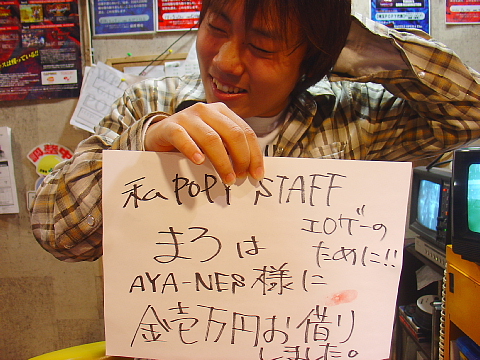 私POPY STAFF
まろは
エロゲーの
ために!!
AYA-NES様に
金壱万円お借り
しました。
調整中